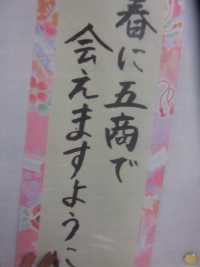 春に五商で
会えますように